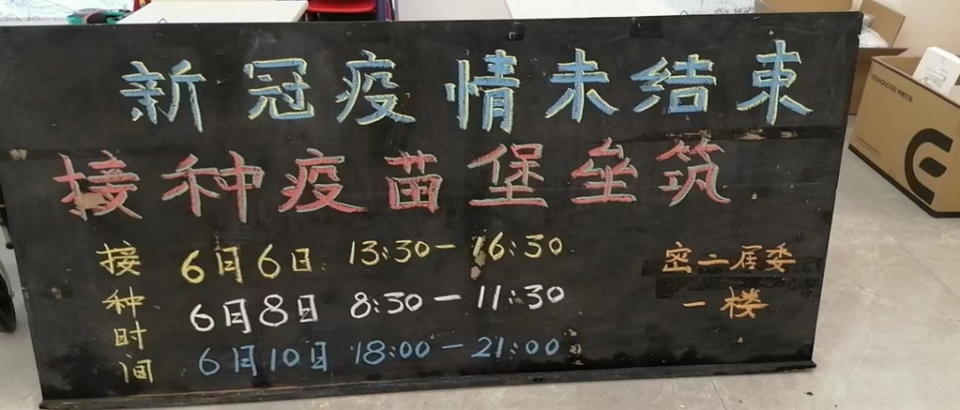 新冠疫情未结束
接种疫苗堡垒筑
接种时间
6月6日 13:30-16:30
6月8日 8:30-11:30
6月10日 18:00-21:00
密二居委
一楼